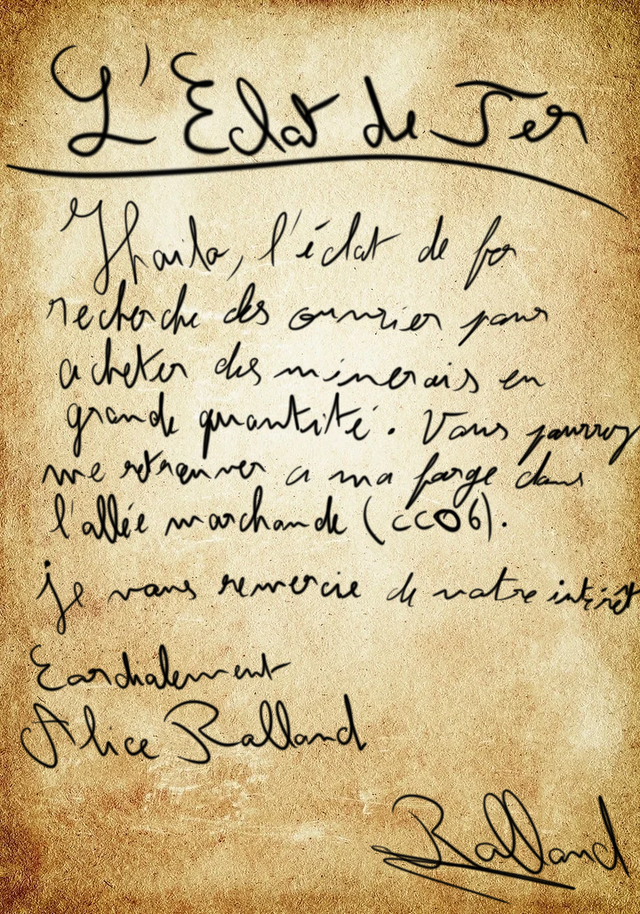 L'Eclat de Fer
l'éclat de fer
recherche des ouvrier pour
acheter des minerais en
grande quantité. Vous pourrez
me retrouver a ma forge dans
l'allée marchande (CC06).
je vous remercie de votre intérêt
Cordialement
Alice Ralland
Ralland